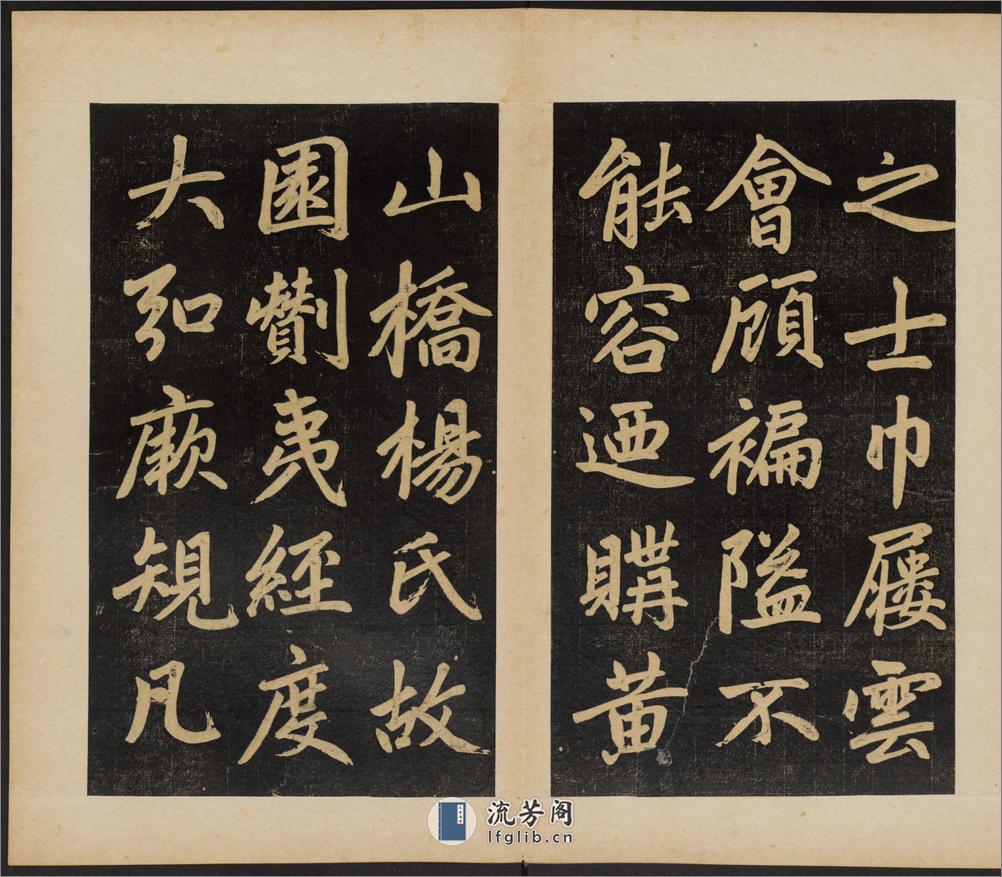 之士巾屨雲
會顧褊隘不
能容迺購黄
山橋楊氏故
園剗夷經度
大弘厥規凡
流芳阁
lfglib.cn